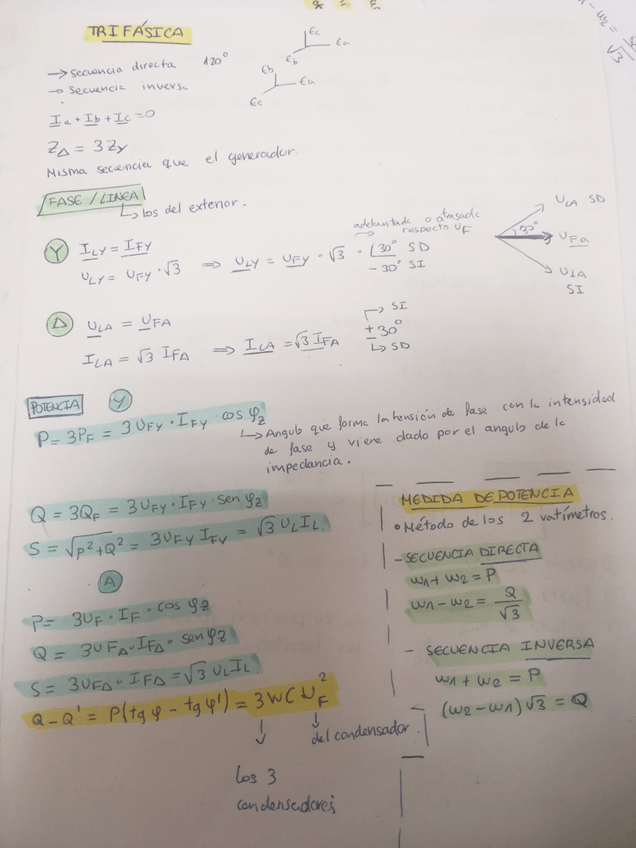 TRIFÁSICA
→ secuencia directa 120°
→ secuencia inversa
Ec
Eb
Ea
Eb
Ea
Ec
Ia + Ib + Ic = 0
ZΔ = 3 ZY
Misma secuencia que el generador.
FASE / LINEA
↳ los del exterior.
adelantada o atrasada
respecto UF
Y
ILY = IFY
ULY = UFY · √3 ⇒ ULY = UFY · √3 · ∟30° SD
-30° SI
ULA SD
30°
UFa
ULA
SI
Δ
ULA = UFA
ILA = √3 IFA ⇒ ILA = √3 IFA ±30°
→ SI
↳ SD
POTENCIA
Y
P = 3PF = 3UFY · IFY cos φz
↳ Angulo que forma la tensión de fase con la intensidad
de fase y viene dado por el angulo de la
impedancia.
Q = 3QF = 3UFY · IFY · sen φz
S = √P²+Q² = 3UFY IFY = √3 UL IL
Δ
P = 3UF · IF · cos φz
Q = 3UFΔ · IFΔ · sen φz
S = 3UFΔ · IFΔ = √3 UL IL
Q - Q' = P(tg φ - tg φ') = 3WC UF²
↓ los 3
condensadores
↓ del condensador.
MEDIDA DE POTENCIA
• Método de los 2 vatímetros.
- SECUENCIA DIRECTA
W1 + W2 = P
W1 - W2 = Q/√3
- SECUENCIA INVERSA
W1 + W2 = P
(W2 - W1) √3 = Q